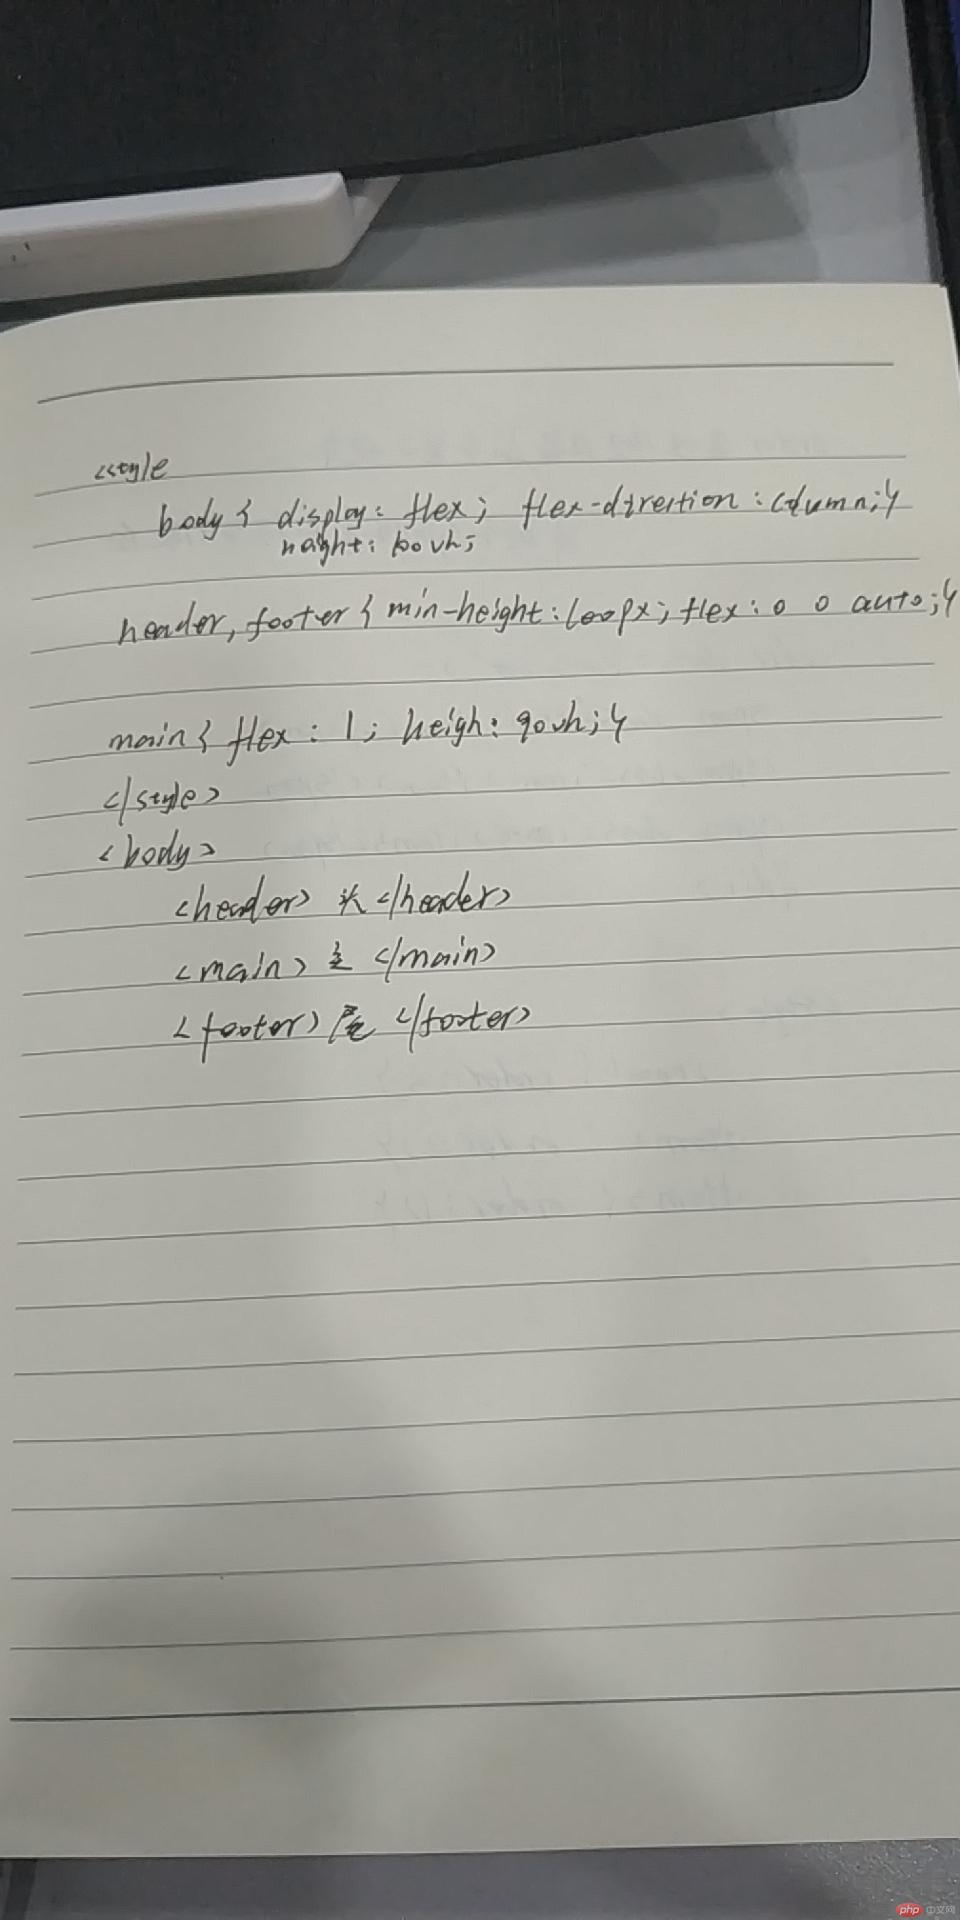 <style
body { display: flex; flex-direction: column; }
height: 100vh;
header, footer { min-height: 100px; flex: 0 0 auto; }
main { flex : 1 ; heigh: 90vh; }
</style>
<body>
<header> 头 </header>
<main> 主 </main>
<footer> 尾 </footer>
php 中文网